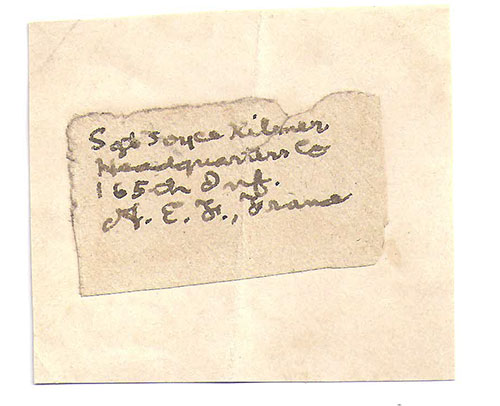 Sgt Joyce Kilmer
Headquarters Co
165th Inf.
A. E. F., France